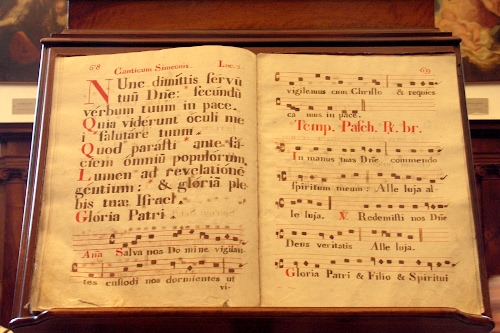 68 Canticum Simeonis. Luc. 2.
NUnc dimittis servũ
tuũ Dñe: * secundũ
verbum tuum in pace.
Quia viderunt oculi me
i * salutare tuum.
Quod parasti * ante fa
ciem omniũ populorum.
Lumen ad revelationẽ
gentium: * & gloriã ple
bis tuæ Israel.
Gloria Patri
Ana Salva nos Domine vigilan
tes custodi nos dormientes ut
vi-
69
vigilemus cum Christo & requies
camus in pace.
Temp. Pasch. R. br.
In manus tuas Dñe commendo
spiritum meum: Alleluja al
leluja. V. Redemisti nos Dñe
Deus veritatis Alleluja.
Gloria Patri & Filio & Spiritui